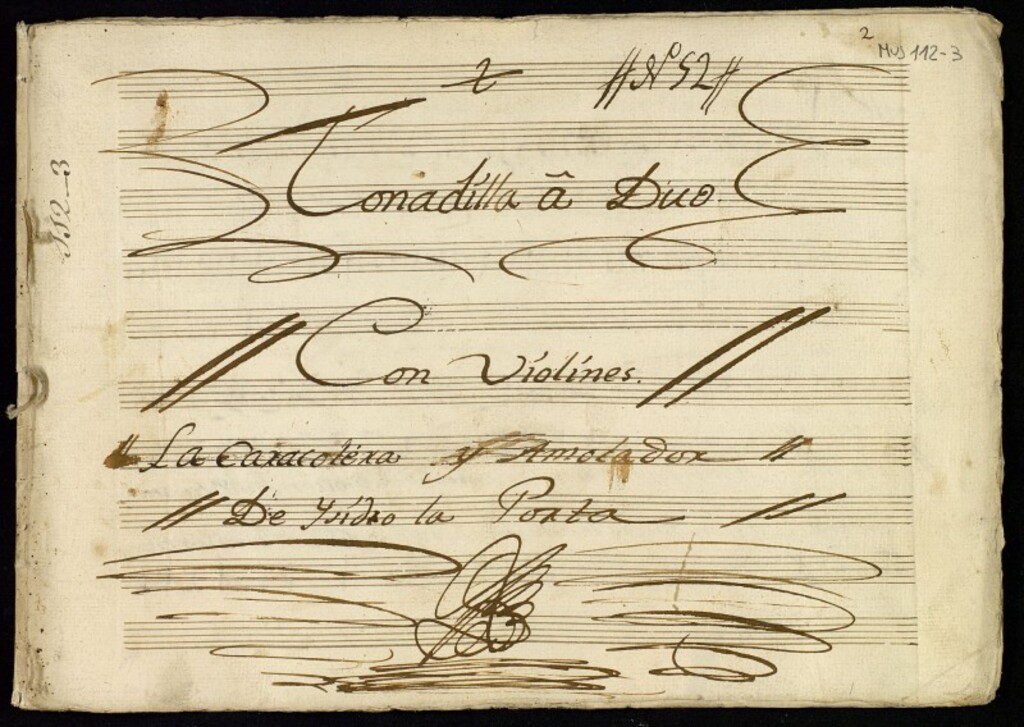 2
Mus 112-3
//Nº 52//
Tonadilla â Duo.
// Con Violines. //
// La Caracolera y Amolador //
// De Ysidro la Porta //
112-3